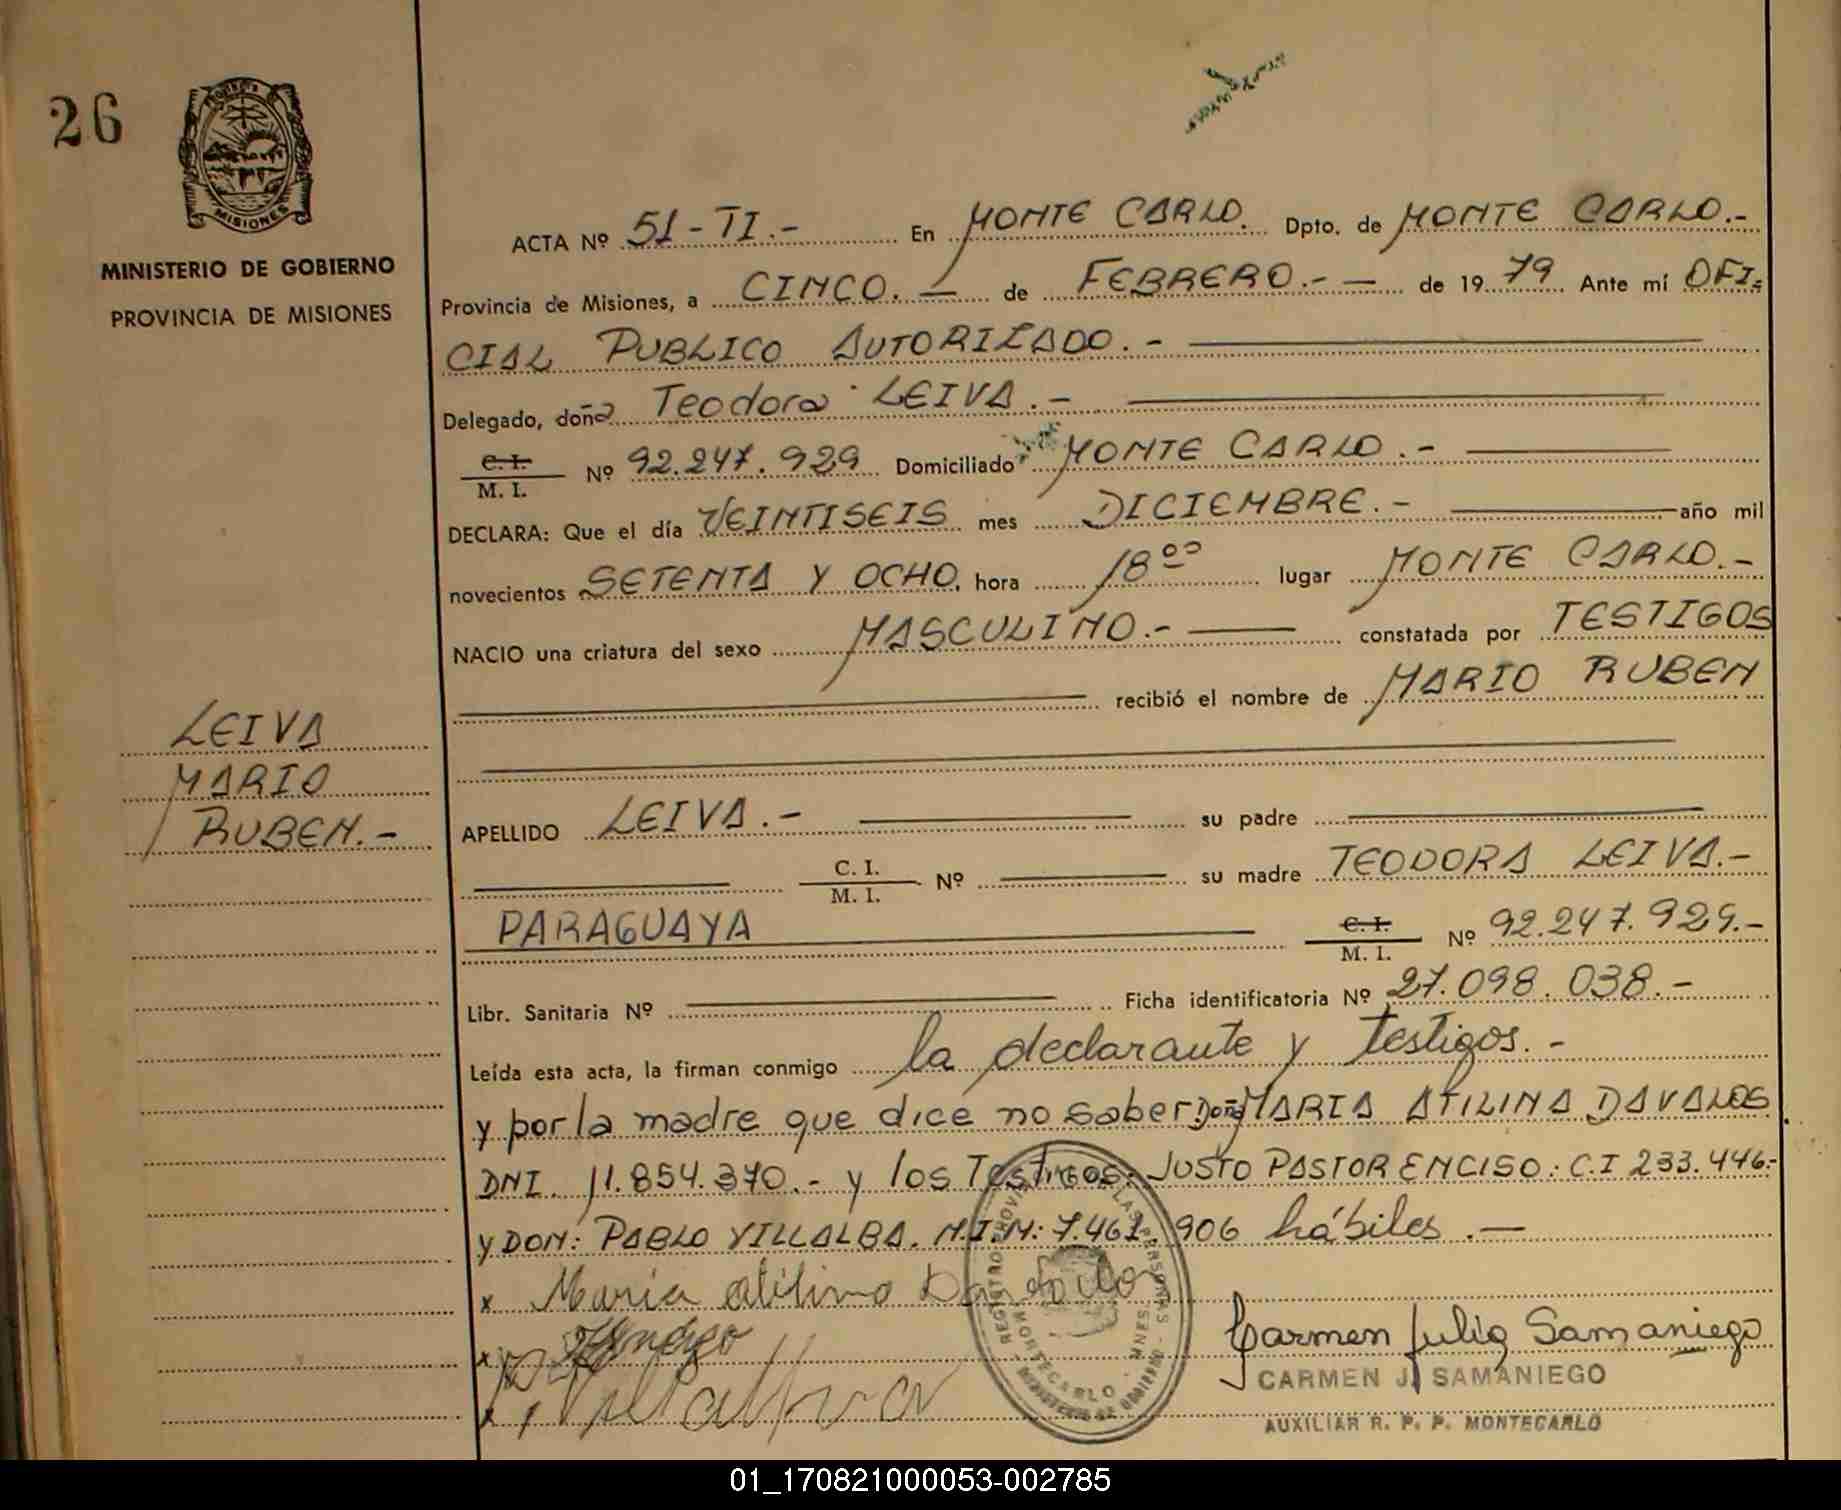 26
MISIONES
MINISTERIO DE GOBIERNO
PROVINCIA DE MISIONES
LEIVA
MARIO
RUBEN.-
ACTA Nº 51-TI.- En MONTE CARLO. Dpto. de MONTE CARLO.-
Provincia de Misiones, a CINCO.— de FEBRERO.-— de 1979 Ante mí OFI-
CIAL PUBLICO AUTORIZADO.-
Delegado, doña Teodora LEIVA.-
C. I.
M. I. Nº 92.247.929 Domiciliado MONTE CARLO.-
DECLARA: Que el día VEINTISEIS mes DICIEMBRE.- año mil
novecientos SETENTA Y OCHO, hora 18⁰⁰ lugar MONTE CARLO.-
NACIO una criatura del sexo MASCULINO.- constatada por TESTIGOS
recibió el nombre de MARIO RUBEN
APELLIDO LEIVA.- su padre
C. I.
M. I. Nº su madre TEODORA LEIVA.-
PARAGUAYA C. I.
M. I. Nº 92.247.929.-
Libr. Sanitaria Nº Ficha identificatoria Nº 27.098.038.-
Leída esta acta, la firman conmigo la declarante y testigos.-
y por la madre que dice no saber Doña MARIA ATILINA DAVALOS
DNI. 11.854.370.- y los Testigos: JUSTO PASTOR ENCISO: C.I 233.446.-
y DON: PABLO VILLALBA. M.I.N: 7.461.906 hábiles.—
x Maria atilina
x
x Villalba
REGISTRO PROVINCIAL DE LAS PERSONAS
MONTECARLO - MNES.
MINISTERIO DE GOBIERNO
Carmen Julia Samaniego
CARMEN J. SAMANIEGO
AUXILIAR R. P. P. MONTECARLO
01_170821000053-002785